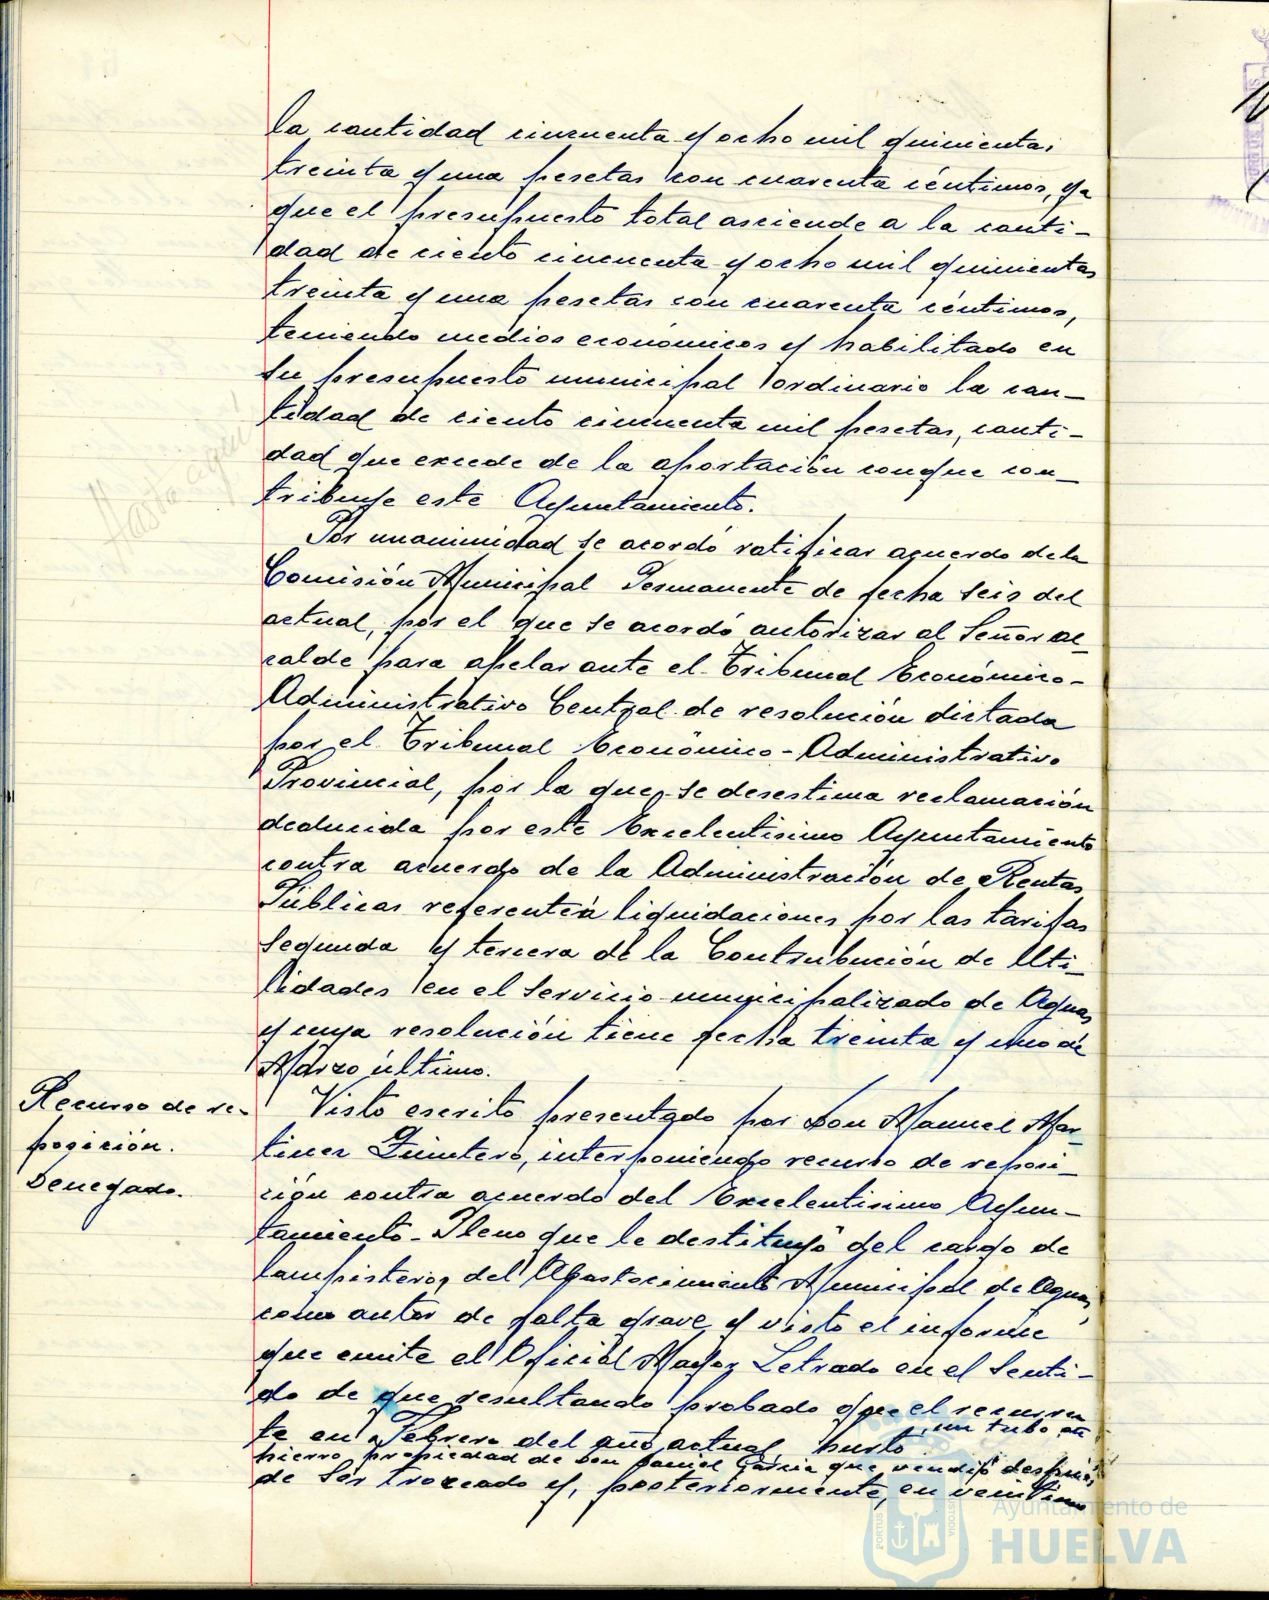 la cantidad cincuenta y ocho mil quinientas
treinta y una pesetas con cuarenta céntimos, ya
que el presupuesto total asciende a la canti-
dad de ciento cincuenta y ocho mil quinientas
treinta y una pesetas con cuarenta céntimos,
teniendo medios económicos y habilitado en
su presupuesto municipal ordinario la can-
tidad de ciento cincuenta mil pesetas, canti-
dad que excede de la aportación conque con-
tribuye este Ayuntamiento.
Hasta aquí
Por unanimidad se acordó ratificar acuerdo de la
Comisión Municipal Permanente de fecha seis del
actual, por el que se acordó autorizar al Señor al-
calde para apelar ante el Tribunal Económico-
Administrativo Central de resolución dictada
por el Tribunal Económico-Administrativo
Provincial, por la que se desestima reclamación
deducida por este Excelentísimo Ayuntamiento
contra acuerdo de la Administración de Rentas
Públicas referente a liquidaciones por las tarifas
segunda y tercera de la Contribución de Uti-
lidades en el servicio municipalizado de Aguas
y cuya resolución tiene fecha treinta y uno de
Marzo último.
Recurso de re-
posición.
Denegado.
Visto escrito presentado por Don Manuel Mar-
tinez Quintero, interponiendo recurso de reposi-
ción contra acuerdo del Excelentisimo Ayun-
tamiento-Pleno que le destituyó del cargo de
lampistero, del Abastecimiento Municipal de Aguas,
como autor de falta grave y visto el informe
que emite el Oficial Mayor Letrado en el senti-
do de que resultando probado que el recurren
te en Febrero del año actual, hurtó un tubo de
hierro propiedad de Don Daniel García que vendió después
de ser trozeado y, posteriormente, en veintiuno
Ayuntamiento de
HUELVA